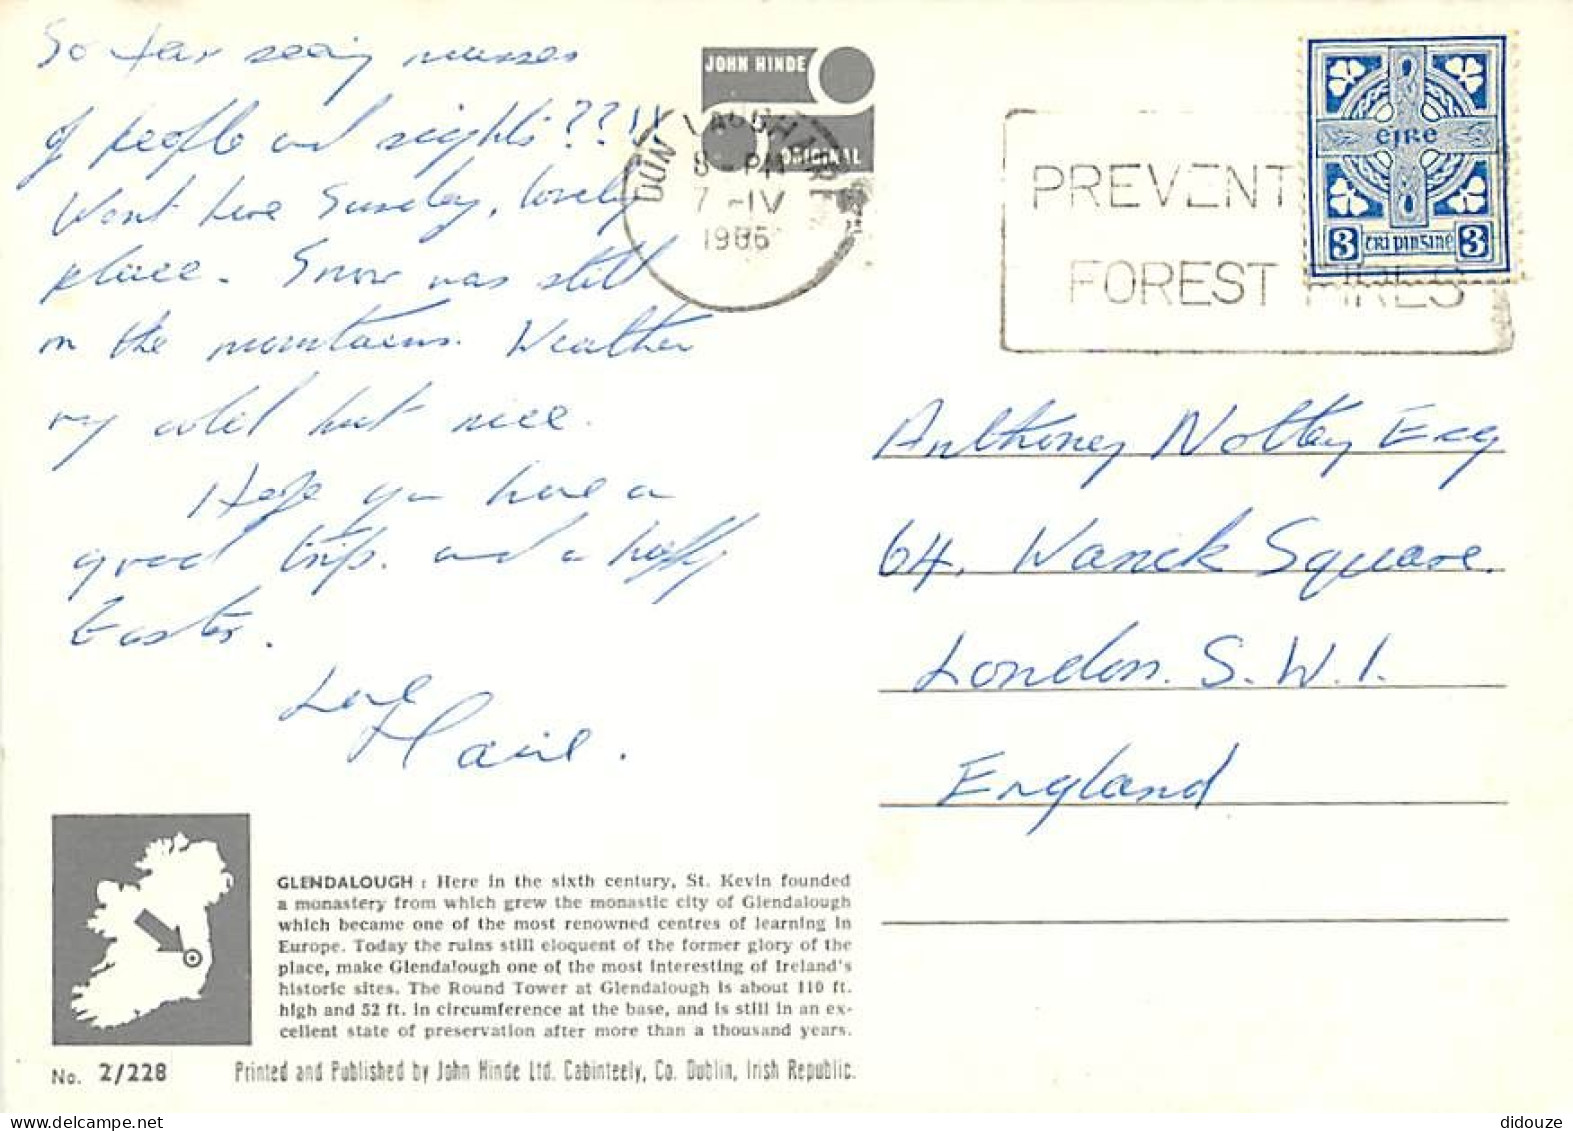 So far seeing masses
of people and sights??!!
Went here Sunday, lovely
place. Snow was still
on the mountains. Weather
my cold but nice.
Hope you have a
good trip. and a happy
Easter.
Love
JOHN HINDE
ORIGINAL
DÚN LAOGHAIRE
8 - PM
7 - IV
PREVENT
FOREST FIRES
éire
3 trí pinsine 3
Anthony Nottey Esq
64, Warwick Square.
London. S.W.1.
England
GLENDALOUGH : Here in the sixth century, St. Kevin founded
a monastery from which grew the monastic city of Glendalough
which became one of the most renowned centres of learning in
Europe. Today the ruins still eloquent of the former glory of the
place, make Glendalough one of the most interesting of Ireland's
historic sites. The Round Tower at Glendalough is about 110 ft.
high and 52 ft. in circumference at the base, and is still in an ex-
cellent state of preservation after more than a thousand years.
No. 2/228
Printed and Published by John Hinde Ltd. Cabinteely, Co. Dublin, Irish Republic.
didouze